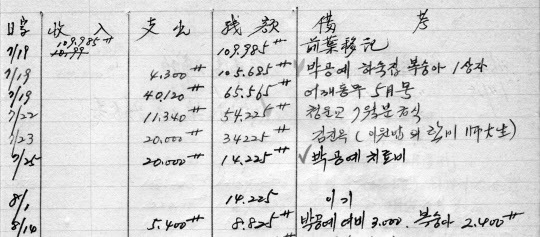 日字 收入 支出 残額 備考
7/19 109.985# 109.985# 前葉移記
7/19 4.300# 105.685# 박공예 하숙집 복숭아 1상자
7/19 40.120# 65.565 5月号
7/22 11.340# 54.225# 7월분
7/23 20.000# 34225# 師大生)
7/25 20.000# 14.225# 박공예 치료비
8/1 14.225 이기
8/14 5.400# 8.825# 박공예 여비 3.000. 복숭아 2.400#